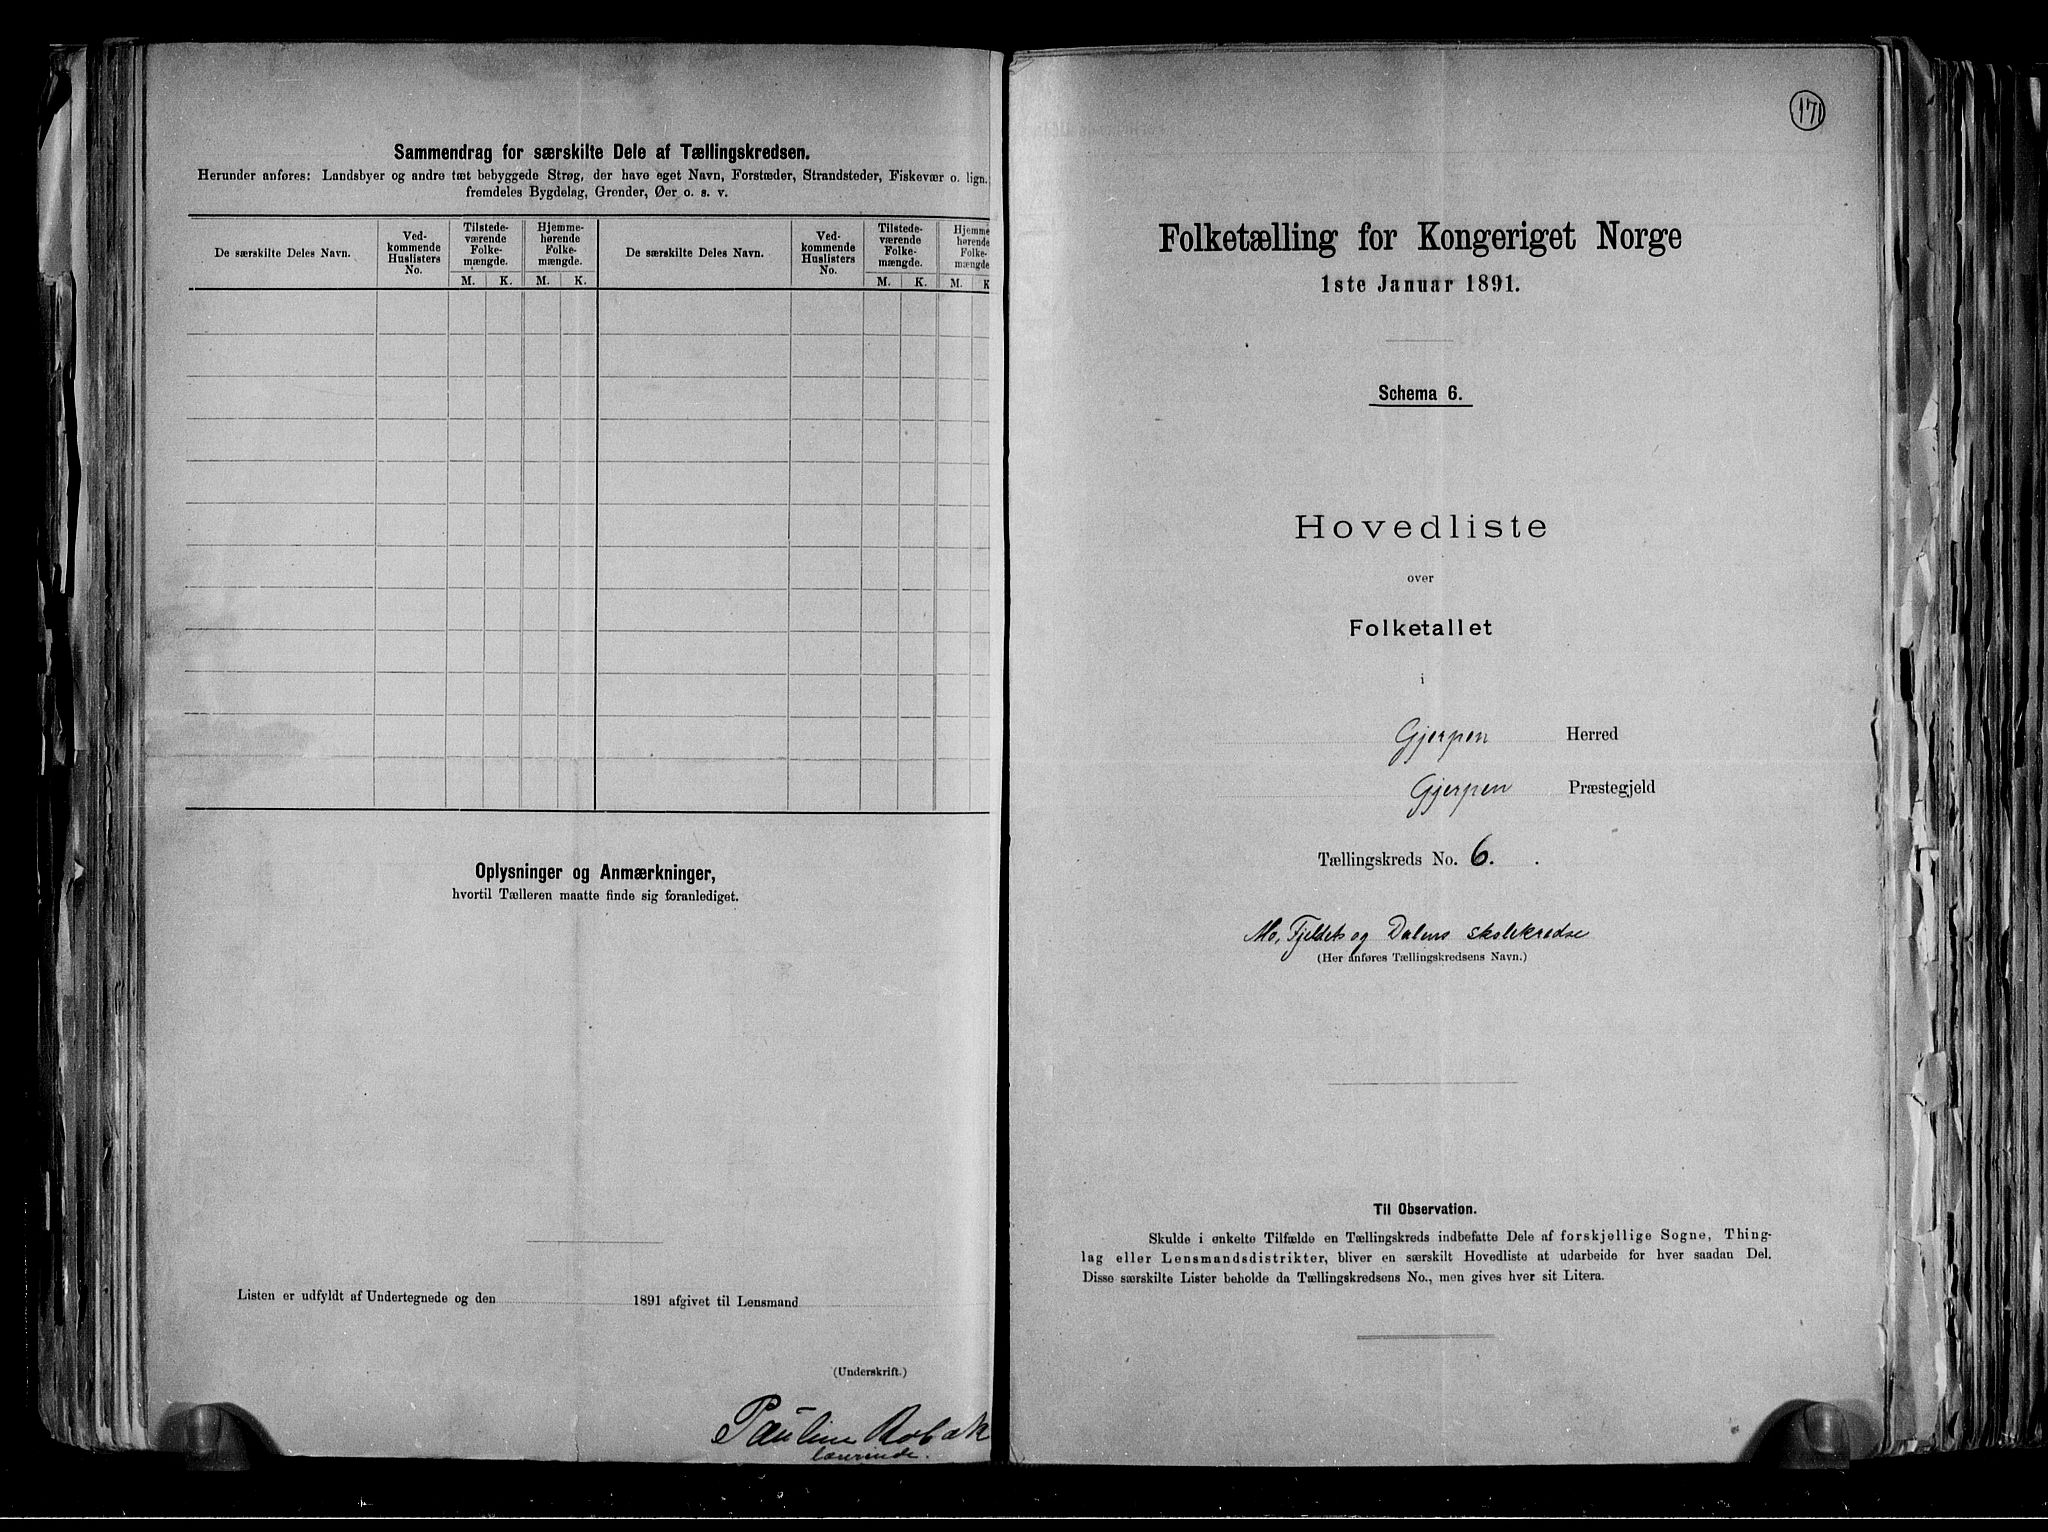 Sammendrag for særskilte Dele af Tællingskredsen.
Herunder anføres: Landsbyer og andre tæt bebyggede Strøg, der have eget Navn, Forstæder, Strandsteder, Fiskevær o. lign.,
fremdeles Bygdelag, Grender, Øer o. s. v.
De særskilte Deles Navn.
Ved-
kommende
Huslisters
No.
Tilstede-
værende
Folke-
mængde.
Hjemme-
hørende
Folke-
mængde.
De særskilte Deles Navn.
Ved-
kommende
Huslisters
No.
Tilstede-
værende
Folke-
mængde.
Hjemme
hørende
Folke-
mængde
M. K. M. K. M. K. M. K
Oplysninger og Anmærkninger,
hvortil Tælleren maatte finde sig foranlediget.
Listen er udfyldt af Undertegnede og den 1891 afgivet til Lensmand
(Underskrift.)
Pauline Robæk
lærerinde.
171
Folketælling for Kongeriget Norge
1ste Januar 1891.
Schema 6.
Hovedliste
over
Folketallet
i
Gjerpen Herred
Gjerpen Præstegjeld
Tællingskreds No. 6.
Mo, Fjeldets og Dalens skolekredse
(Her anføres Tællingskredsens Navn.)
Til Observation.
Skulde i enkelte Tilfælde en Tællingskreds indbefatte Dele af forskjellige Sogne, Thing-
lag eller Lensmandsdistrikter, bliver en særskilt Hovedliste at udarbeide for hver saadan Del.
Disse særskilte Lister beholde da Tællingskredsens No., men gives hver sit Litera.